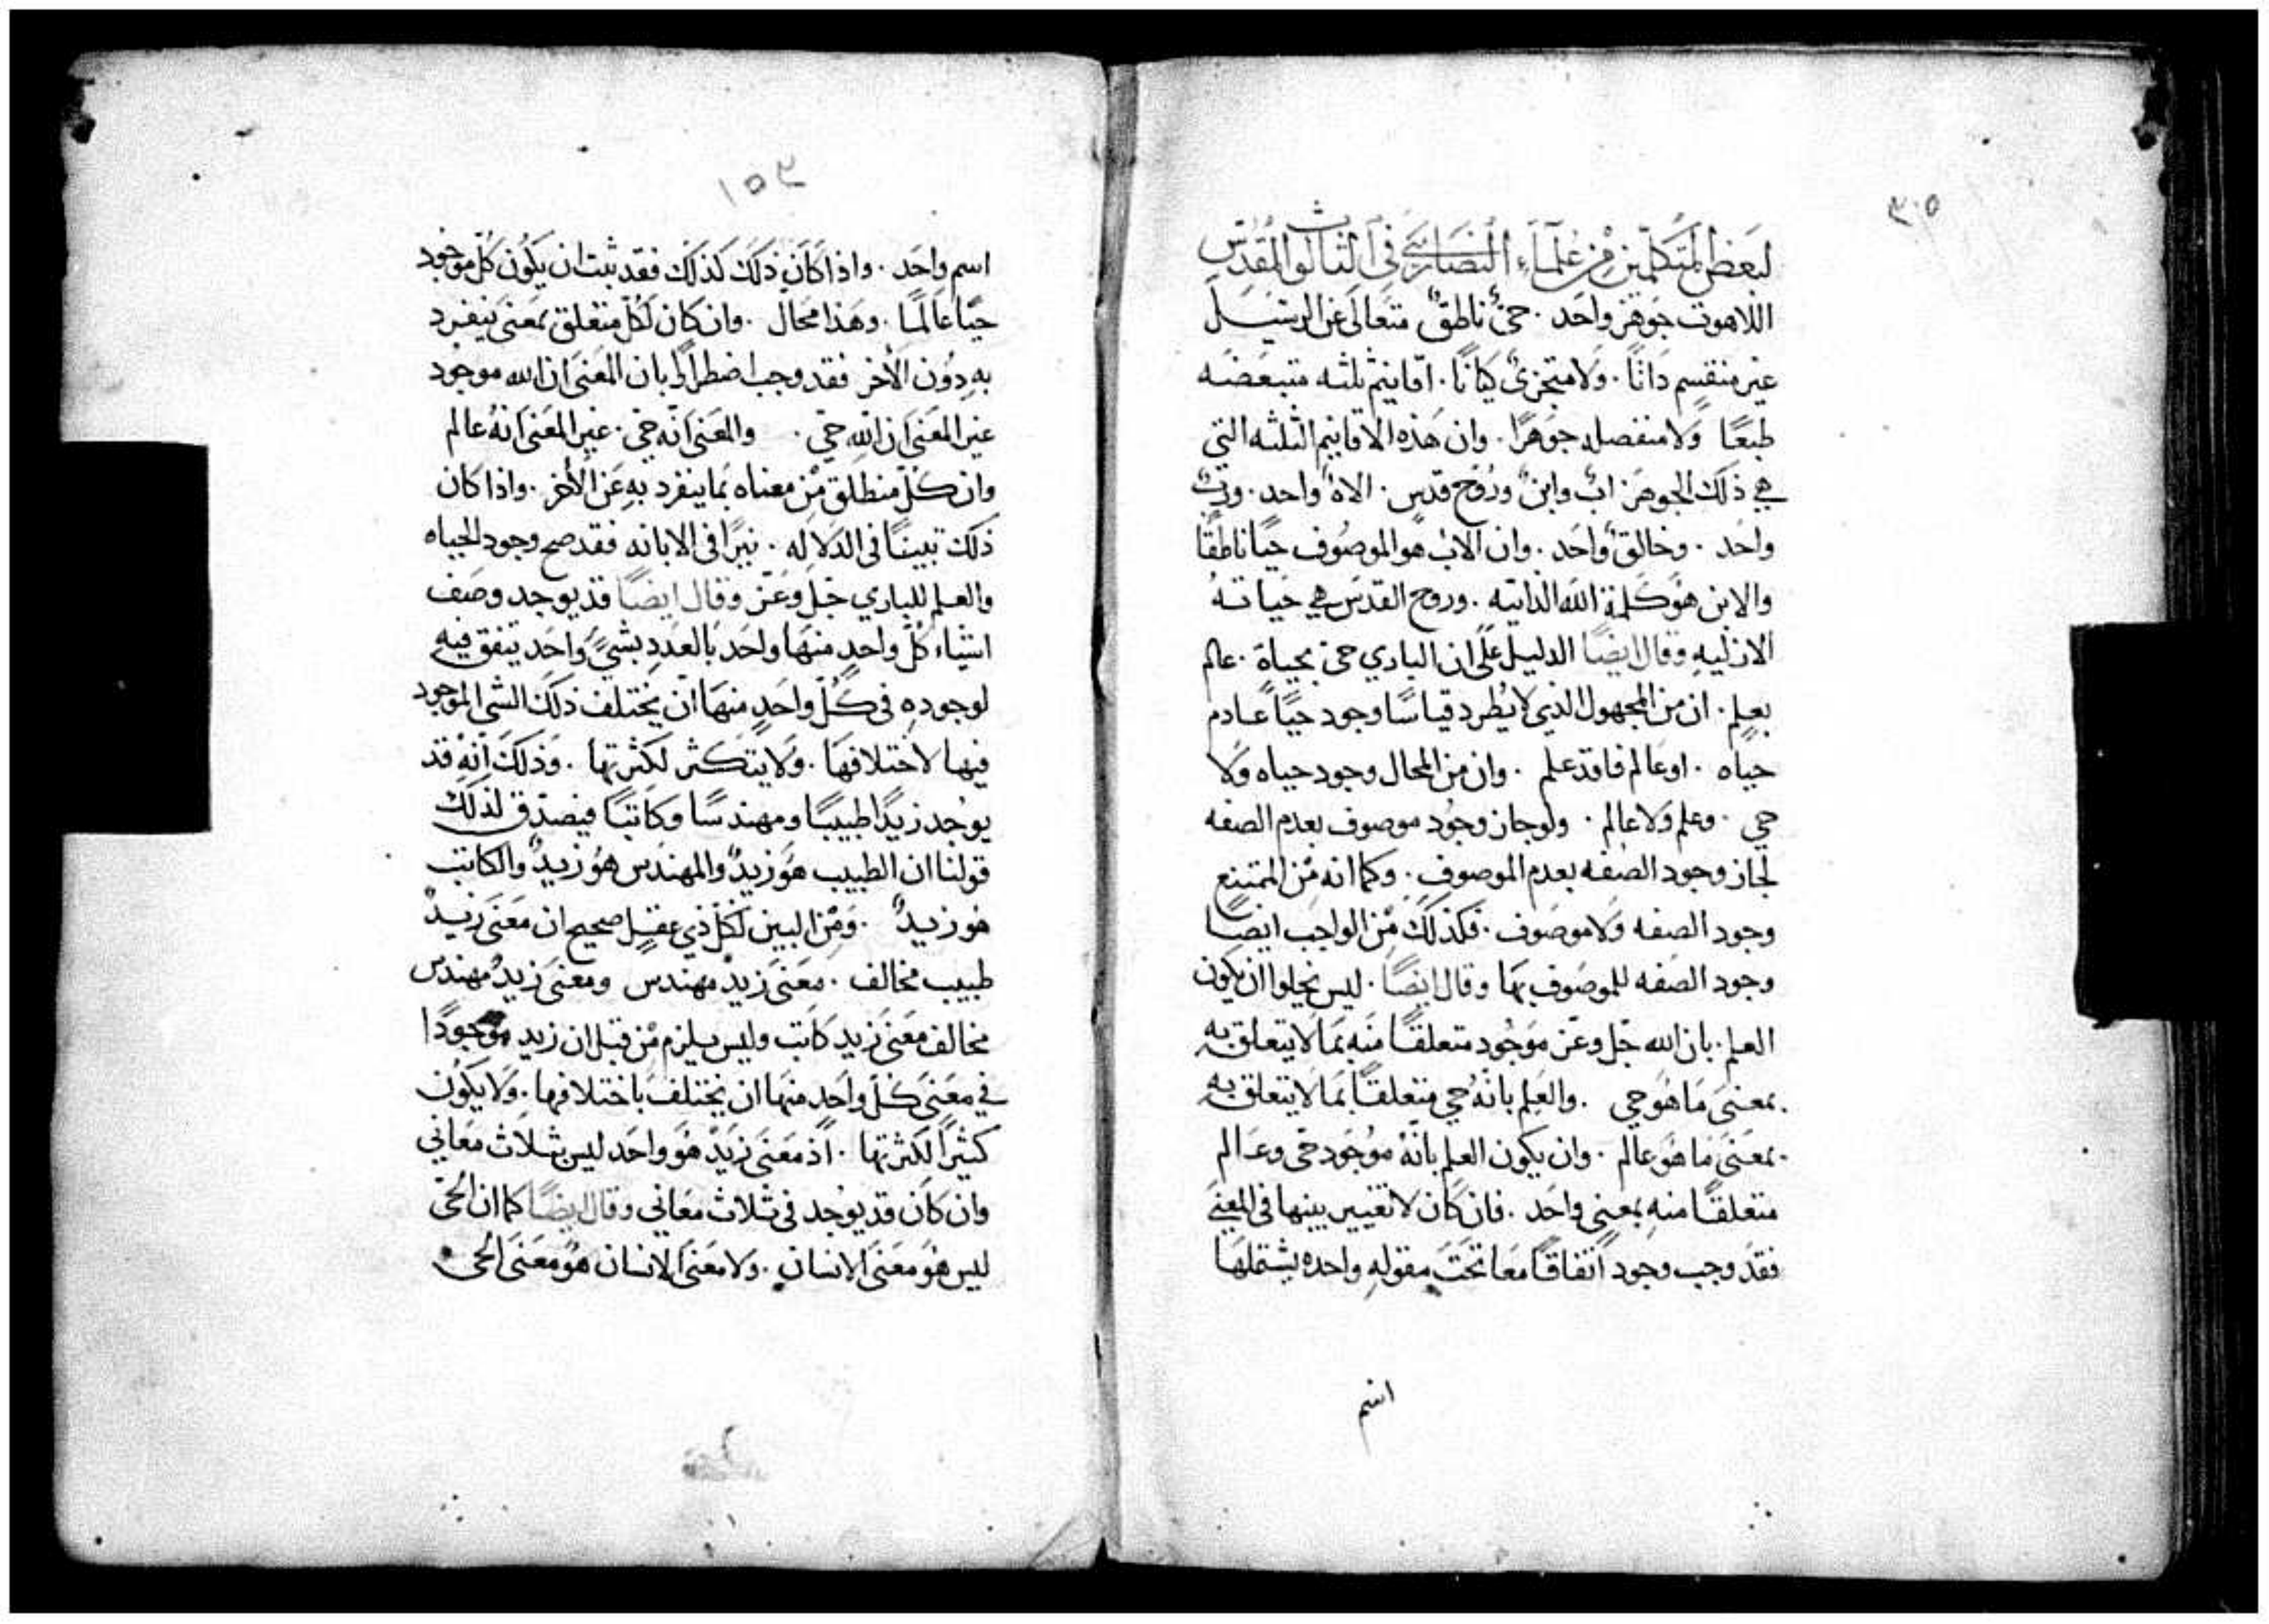 ٣٠٥
لبعض المتكلمين من علماء النصارى في الثالوث المقدس
اللاهوت جوهر واحد . حىٌ ناطقٌ متعالى عن
غير منقسم ذاتًا . ولا متجزىٌ كيانًا . اقانيم ثلثه متبعضه
طبعًا ولا منفصله جوهرًا . وان هذه الاقانيم الثلثه التي
هي ذلك الجوهر ابٌ وابنٌ وروح قدس . الاهٌ واحد . وربٌ
واحد . وخالقٌ واحد . وان الاب هو الموصوف حيًا ناطقًا
والابن هو كلمة الله الذاتيه . وروح القدس هي حياته
الازليه وقال ايضًا الدليل على ان الباري حى بحياة . عالم
بعلم . ان من المجهول الذي لا يطرد قياسًا وجود حيًا عادم
حياه . او عالم فاقد علم . وان من المحال وجود حياه ولا
حي . وعلم ولا عالم . ولو جاز وجود موصوف بعدم الصفه
لجاز وجود الصفه بعدم الموصوف . وكما انه من الممتنع
وجود الصفه ولا موصوف . فكذلك من الواجب ايضًا
وجود الصفه للموصوف بها وقال ايضًا . ليس يخلوا ان يكون
العلم . بان الله جل وعز موجود متعلقًا منه بما لا يتعلق به
بمعنى ما هو حي . والعلم بانه حي متعلقًا بما لا يتعلق به
بمعنى ما هو عالم . وان يكون العلم بانه موجود حى وعالم
متعلقًا منه بمعنى واحد . فان كان لا تغيير بينها في المعنى
فقد وجب وجود اتفاقًا معا تحت مقوله واحده يشتملها
اسم
١٥٣
اسم واحد . واذا كان ذلك كذلك فقد ثبت ان يكون كل موجود
حيًا عالمًا . وهذا محال . وان كان لكل متعلق بمعنى ينفرد
به دون الأخر فقد وجب اضطرارًا بان المعنى ان الله موجود
غير المعنى ان الله حي . والمعنى انه حي . غير المعنى انه عالم
وان كل منطلق من معناه بما ينفرد به عن الأخر . واذا كان
ذلك تبيينًا في الدلاله . نيرًا في الابانه فقد صح وجود الحياه
والعلم للباري جل وعز وقال ايضًا قد يوجد وصف
اشياء كل واحد منها واحد بالعدد بشيً واحد يتفق فيه
لوجوده في كل واحد منها ان يختلف ذلك الشي الموجود
فيها لاختلافها . ولا يتكثر لكثرتها . وذلك انه قد
يوجد زيدًا طبيبًا ومهندسًا وكاتبًا فيصدق لذلك
قولنا ان الطبيب هو زيدٌ والمهندس هو زيدٌ والكاتب
هو زيدٌ . ومن البين لكل ذي عقل صحيح ان معنى زيدٌ
طبيب مخالف . معنى زيدٌ مهندس ومعنى زيدٌ مهندس
مخالف معنى زيد كاتب وليس يلزم من قبل ان زيد موجودًا
في معنى كل واحد منها ان يختلف باختلافها . ولا يكون
كثيرًا لكثرتها . اذ معنى زيدٌ هو واحد ليس بثلاث معاني
وان كان قد يوجد في ثلاث معاني وقال ايضًا كما ان الحى
ليس هو معنى الانسان . ولا معنى الانسان هو معنى الحى